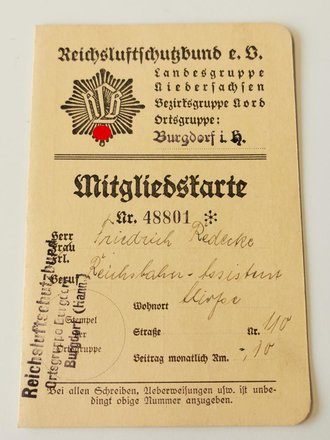 Reichsluftschutzbund e. V.
RLB
Landesgruppe
Niedersachsen
Bezirksgruppe Nord
Ortsgruppe:
Burgdorf i. H.
Mitgliedskarte
Nr. 48801 *
Herr
Frau
Frl.
Friedrich Redecke
Beruf Reichsbahn-Assistent
Wohnort
Straße Nr. 110
Beitrag monatlich Rm. -,10
Stempel
der
Ortsgruppe
Reichsluftschutzbund
Ortsgruppe Burgdorf
Burgdorf (Hann.)
Bei allen Schreiben, Ueberweisungen usw. ist unbe-
dingt obige Nummer anzugeben.